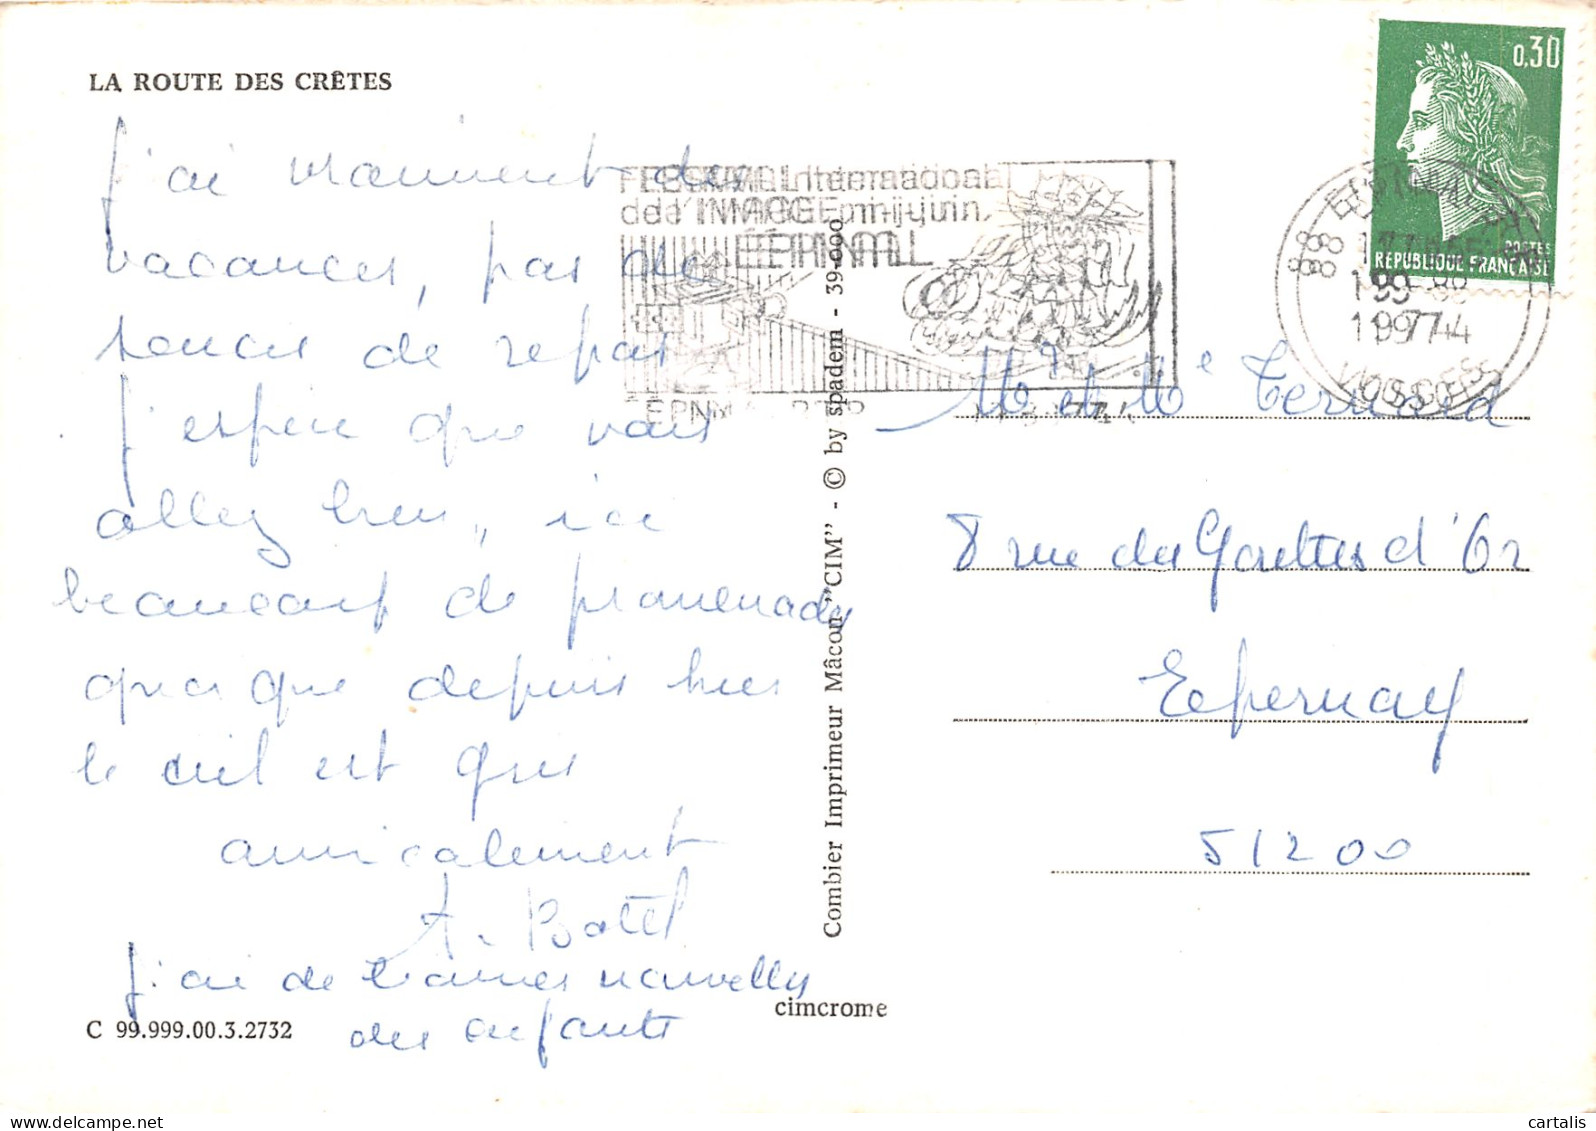 LA ROUTE DES CRÊTES
0,30
POSTES
REPUBLIQUE FRANÇAISE
j'ai vraiment des
vacances, pas de
soucis de repas
j'espère que vous
allez bien, ici
beaucoup de promenades
quoi que depuis hier
le ciel est gris
amicalement
A. Batel
j'ai de bonnes nouvelles
des enfants
C 99.999.00.3.2732
cimcrome
Combier Imprimeur Mâcon "CIM" - © by spadem - 39-000
FESTIVAL International
de l'IMAGE mi-juin
ÉPINAL
88 EPINAL
1974
VOSGES
Mr et Me Ternard
8 rue des Gouttes d'Or
Epernay
51200
cartalis
delcampe.net